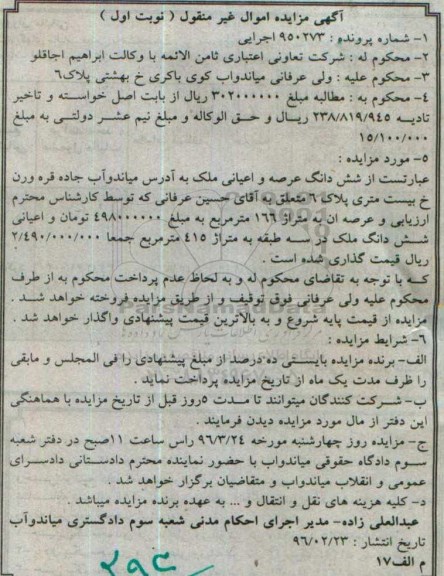 آگهی مزایده اموال غیر منقول ( نوبت اول )
۱- شماره پرونده : ۹۵۰۲۷۳ اجرایی
۲- محکوم له : شرکت تعاونی اعتباری ثامن الائمه با وکالت ابراهیم اجاقلو
۳- محکوم علیه : ولی عرفانی میاندواب کوی باکری خ بهشتی پلاک۶
۴- محکوم به : مطالبه مبلغ ۳۰۲۰۰۰۰۰۰ ریال از بابت اصل خواسته و تاخیر
تادیه ۲۳۸/۸۱۹/۹۴۵ ریال و حق الوکاله و مبلغ نیم عشر دولتی به مبلغ
۱۵/۱۰۰/۰۰۰
۵- مورد مزایده :
عبارتست از شش دانگ عرصه و اعیانی ملک به آدرس میاندوآب جاده قره ورن
خ بیست متری پلاک ۶ متعلق به آقای حسین عرفانی که توسط کارشناس محترم
ارزیابی و عرصه ان به متراژ ۱۶۶ مترمربع به مبلغ ۴۹۸۰۰۰۰۰۰ تومان و اعیانی
شش دانگ ملک در سه طبقه به متراژ ۴۱۵ مترمربع جمعا ۲/۴۹۰/۰۰۰/۰۰۰
ریال قیمت گذاری شده است .
که با توجه به تقاضای محکوم له و به لحاظ عدم پرداخت محکوم به از طرف
محکوم علیه ولی عرفانی فوق توقیف و از طریق مزایده فروخته خواهد شد .
مزایده از قیمت پایه شروع و به بالاترین قیمت پیشنهادی واگذار خواهد شد .
۶- شرایط مزایده :
الف- برنده مزایده بایستی ده درصد از مبلغ پیشنهادی را فی المجلس و مابقی
را ظرف مدت یک ماه از تاریخ مزایده پرداخت نماید .
ب- شرکت کنندگان میتوانند تا مدت ۵روز قبل از تاریخ مزایده با هماهنگی
این دفتر از مال مورد مزایده دیدن فرمایند .
ج- مزایده روز چهارشنبه مورخه ۹۶/۳/۲۴ راس ساعت ۱۱صبح در دفتر شعبه
سوم دادگاه حقوقی میاندواب با حضور نماینده محترم دادستانی دادسرای
عمومی و انقلاب میاندواب و متقاضیان برگزار خواهد شد .
د- کلیه هزینه های نقل و انتقال و ... به عهده برنده مزایده میباشد .
عبدالعلی زاده- مدیر اجرای احکام مدنی شعبه سوم دادگستری میاندوآب
تاریخ انتشار : ۹۶/۰۲/۲۳
م الف۱۷